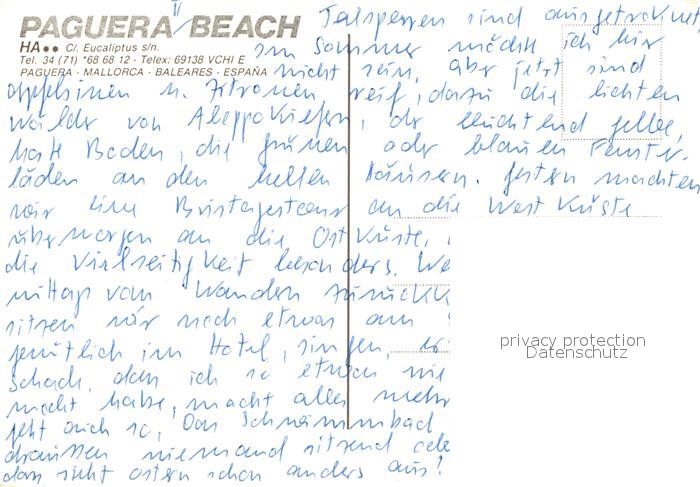 II
PAGUERA BEACH
HA●● C/. Eucaliptus s/n.
Tel. 34 (71) *68 68 12 - Telex: 69138 VCHI E
PAGUERA - MALLORCA - BALEARES - ESPAÑA
Talsperren sind ausgetrocknet,
im Sommer möchte ich hier
nicht sein, aber jetzt sind
Apfelsinen u. Zitronen reif, dazu die lichten
Wälder von Aleppokiefern, der leuchtend gelbe,
rote Boden, die grünen oder blauen Fenster-
läden an den hellen Häusern. Gestern machten
wir eine an die Westküste
übermorgen an die Ostküste,
die Vielseitigkeit besonders. We
mittags vom Wandern zurückk
sitzen wir noch etwas am
gemütlich im Hotel, singen,
Schach, dass ich so etwas nie
macht habe, macht alles mehr
geht auch so, Das Schwimmbad
draussen niemand sitzend ode
das sieht Ostern schon anders aus!
privacy protection
Datenschutz